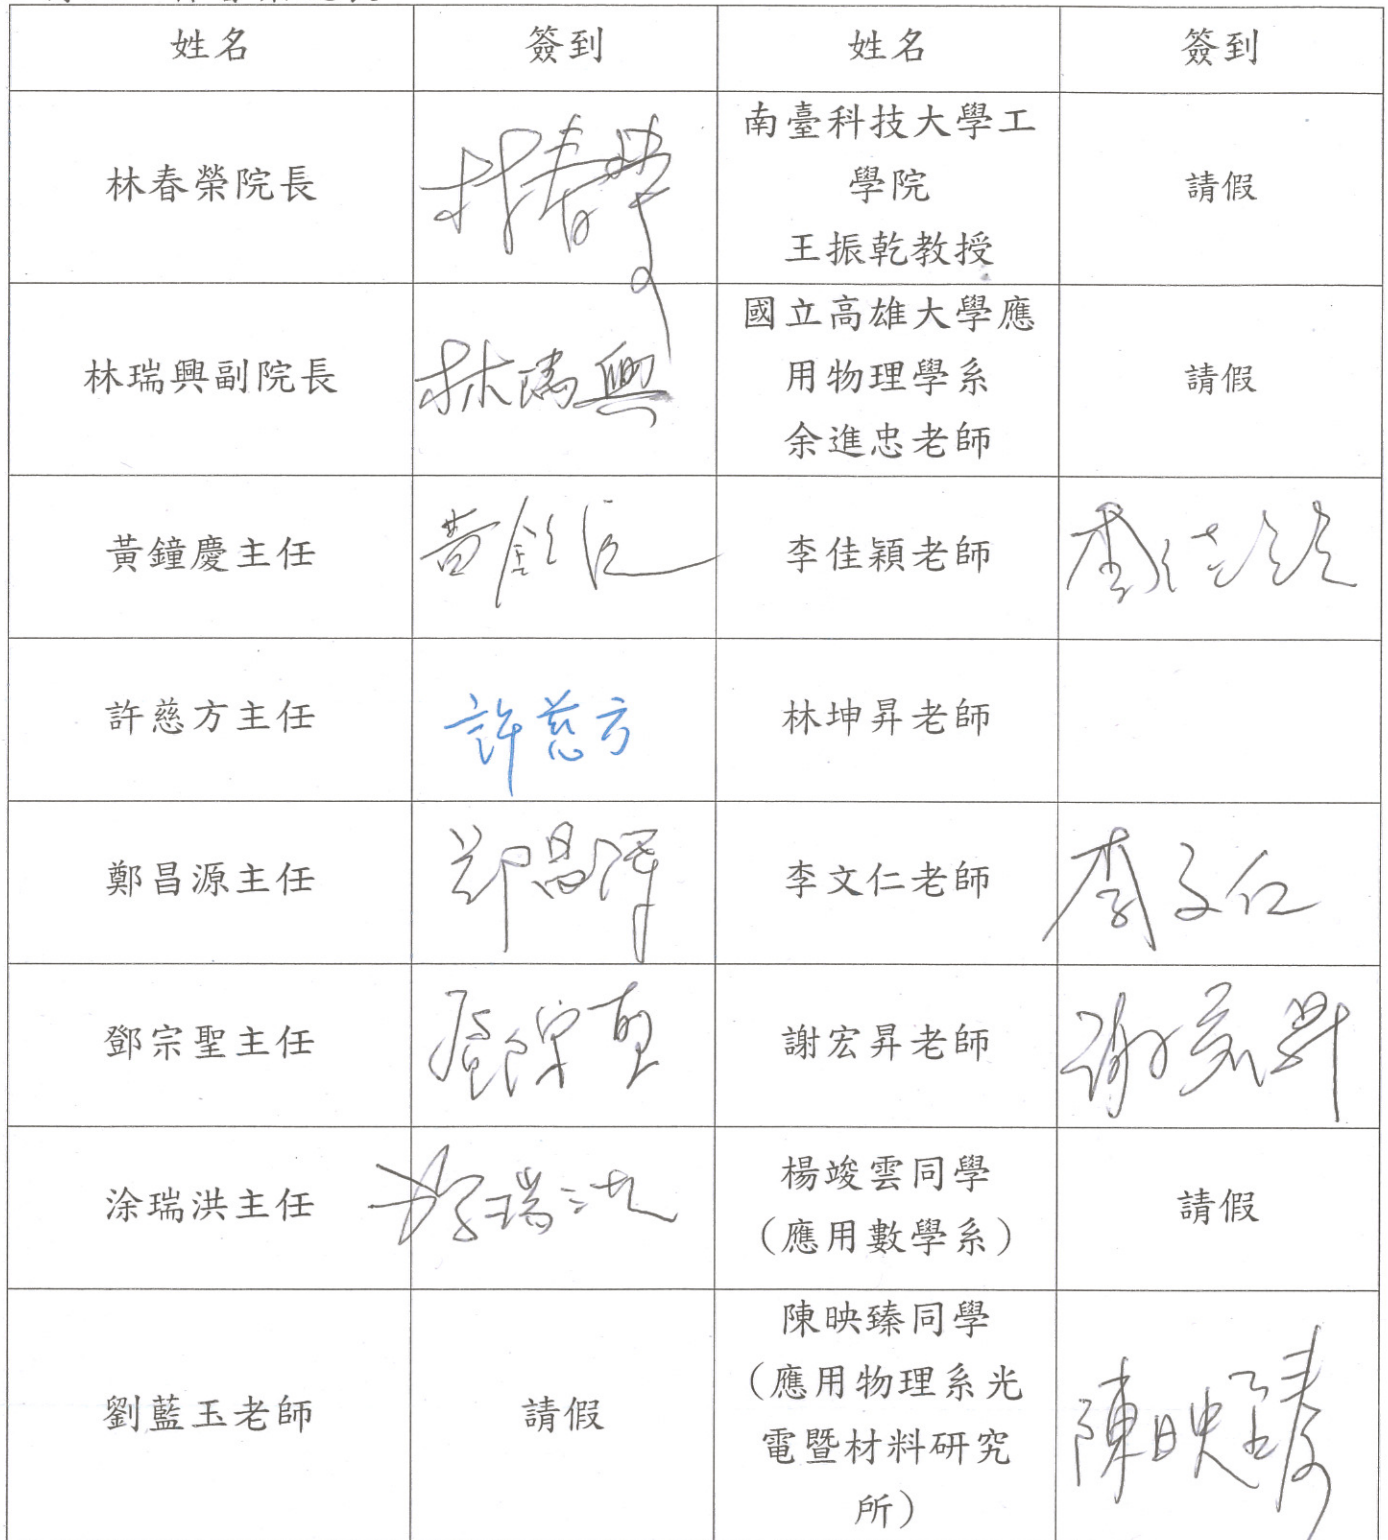 姓名 簽到 姓名 簽到
林春榮院長 林春榮 南臺科技大學工
學院
王振乾教授 請假
林瑞興副院長 林瑞興 國立高雄大學應
用物理學系
余進忠老師 請假
黃鐘慶主任 李佳穎老師 李佳穎
許慈方主任 許慈方 林坤昇老師
鄭昌源主任 鄭昌源 李文仁老師 李文仁
鄧宗聖主任 鄧宗聖 謝宏昇老師 謝宏昇
涂瑞洪主任 涂瑞洪 楊竣雲同學
(應用數學系) 請假
劉藍玉老師 請假 陳映臻同學
(應用物理系光
電暨材料研究
所) 陳映臻